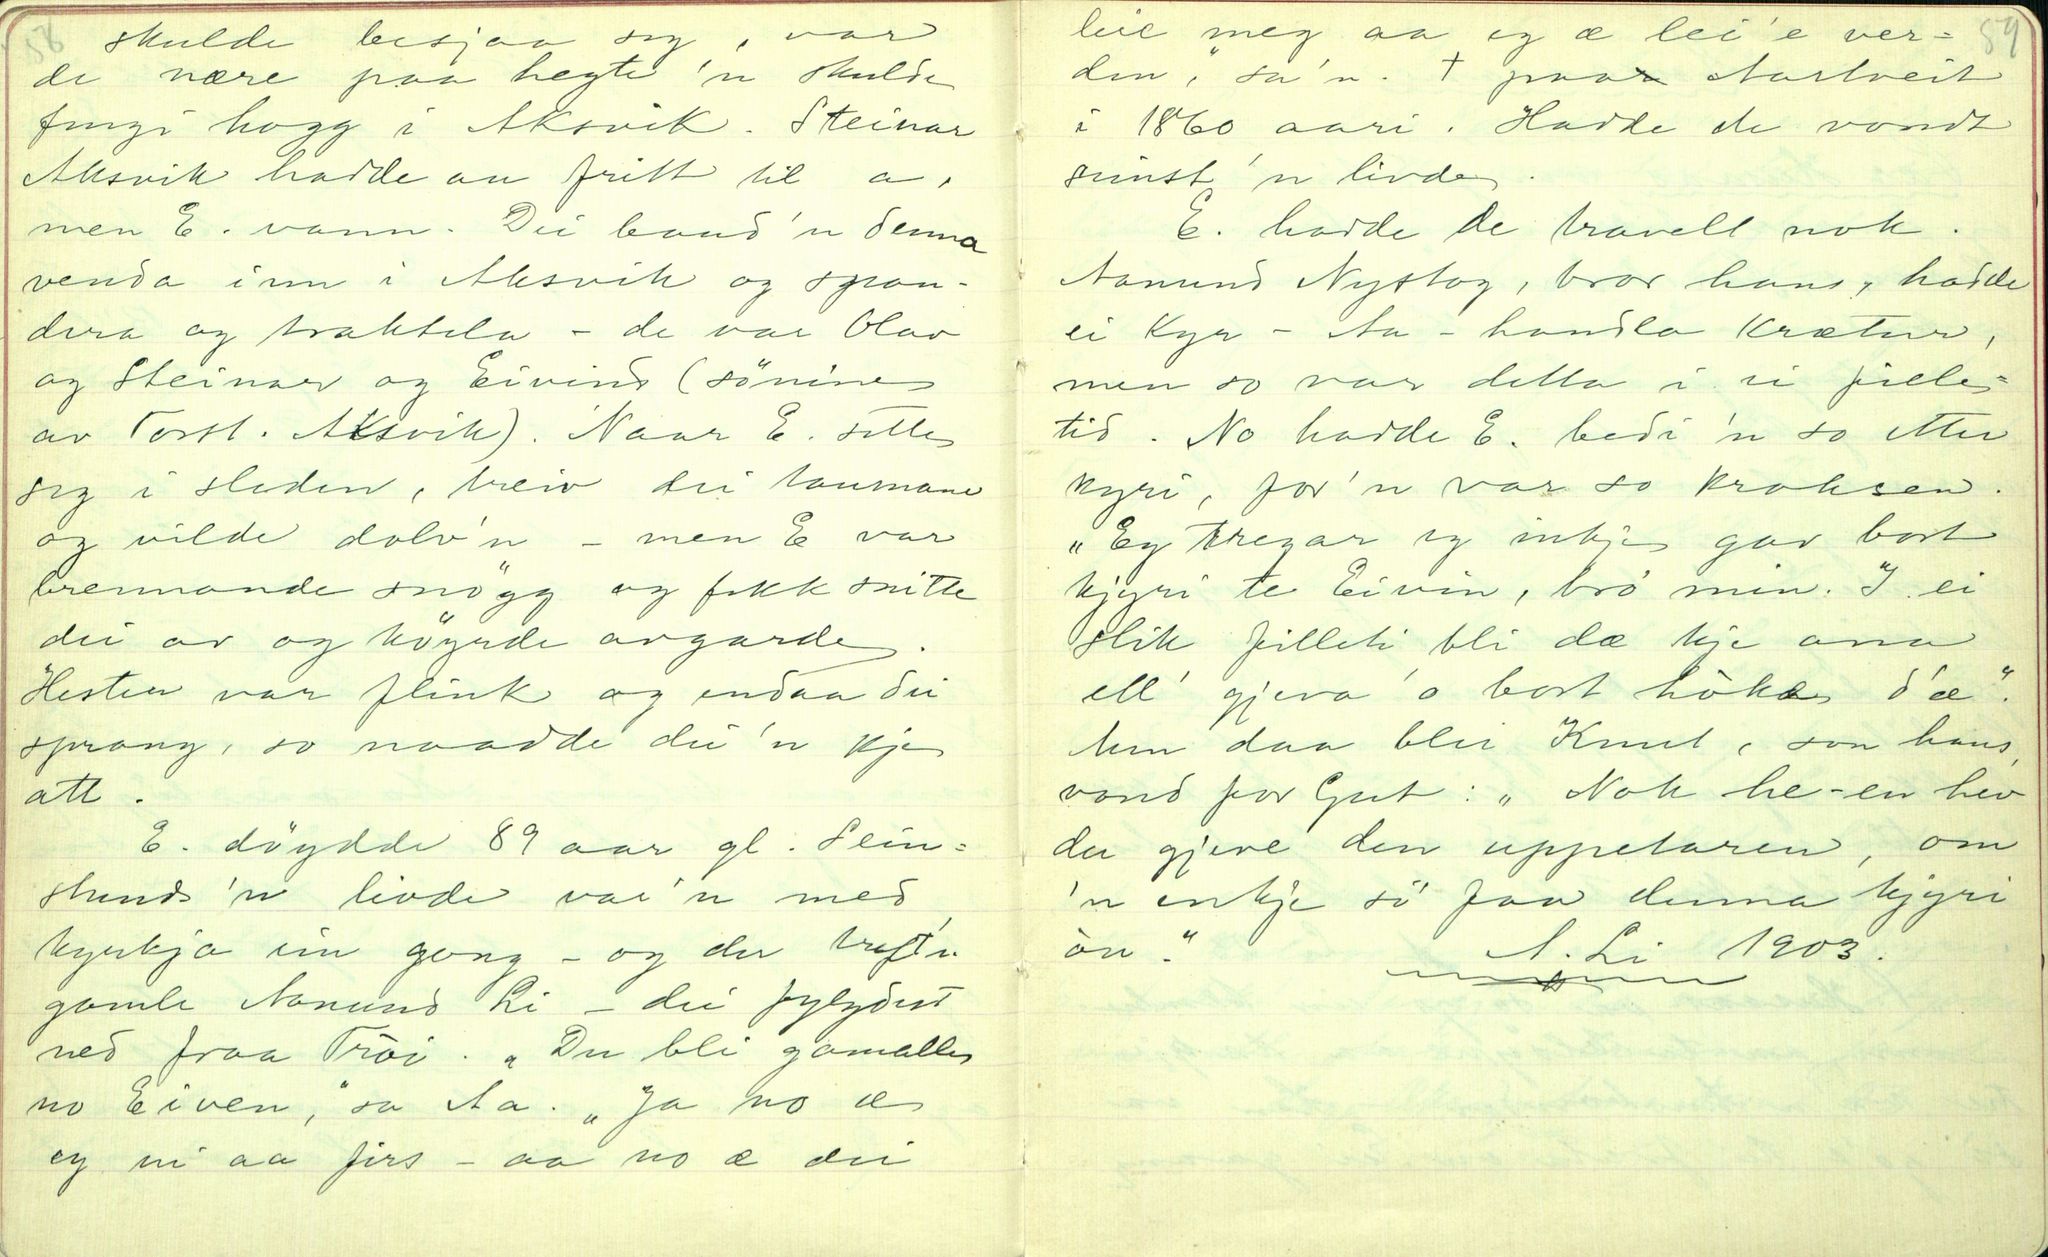 58
skulde besjaa seg, var
de nære paa hegte 'n skulde
fingi hogg i Aksvik. Steinar
Aksvik hadde au fritt til a,
men E. vann. Dei baud 'n denna
venda inn i Aksvik og span-
dera og traktela - de var Olav
og Steinar og Eivind (sönine
av Torst. Aksvik). Naar E. sette
seg i sleden, treiv dei taumane
og vilde dolv'n - men E var
brennande snögg og fekk snitte
dei av og köyrde avgarde.
Hesten var flink og endaa dei
sprang, so naadde dei 'n kje
att.
E. döydde 89 aar gl. Sein-
stunds 'n livde var'n med
kyrkja ein gong - og der traft'n
gamle Aanund Li - dei fylgdest
ned fraa Tröi. "Du bli gamalle
no Eiven," sa Aa. "Ja no æ
eg ni aa firs - aa no æ dei
59
leie meg aa eg æ lei 'e ver-
den," sa'n. † paa Aastveit
i 1860 aari. Hadde de vondt
sinst 'n livde.
E. hadde de travelt nok.
Aanund Nystog, bror hans, hadde
ei kyr - Aa - handla krætur,
men so var detta i ei fille-
tid. No hadde E. bedi 'n so etter
kyri, for 'n var so kroksen.
"Eg tregar eg inkje gav bort
kjyri te Eivin, bro min. I ei
slik filleti bli dæ kje ana
ell' gjeva 'o bort hökes d'æ".
Men daa blei Knut, son hans,
vond for Gut: "Nok he-en hev
du gjeve den uppetaren, om
'n enkje so faa denna kjyri
ön."
A. Li 1903.